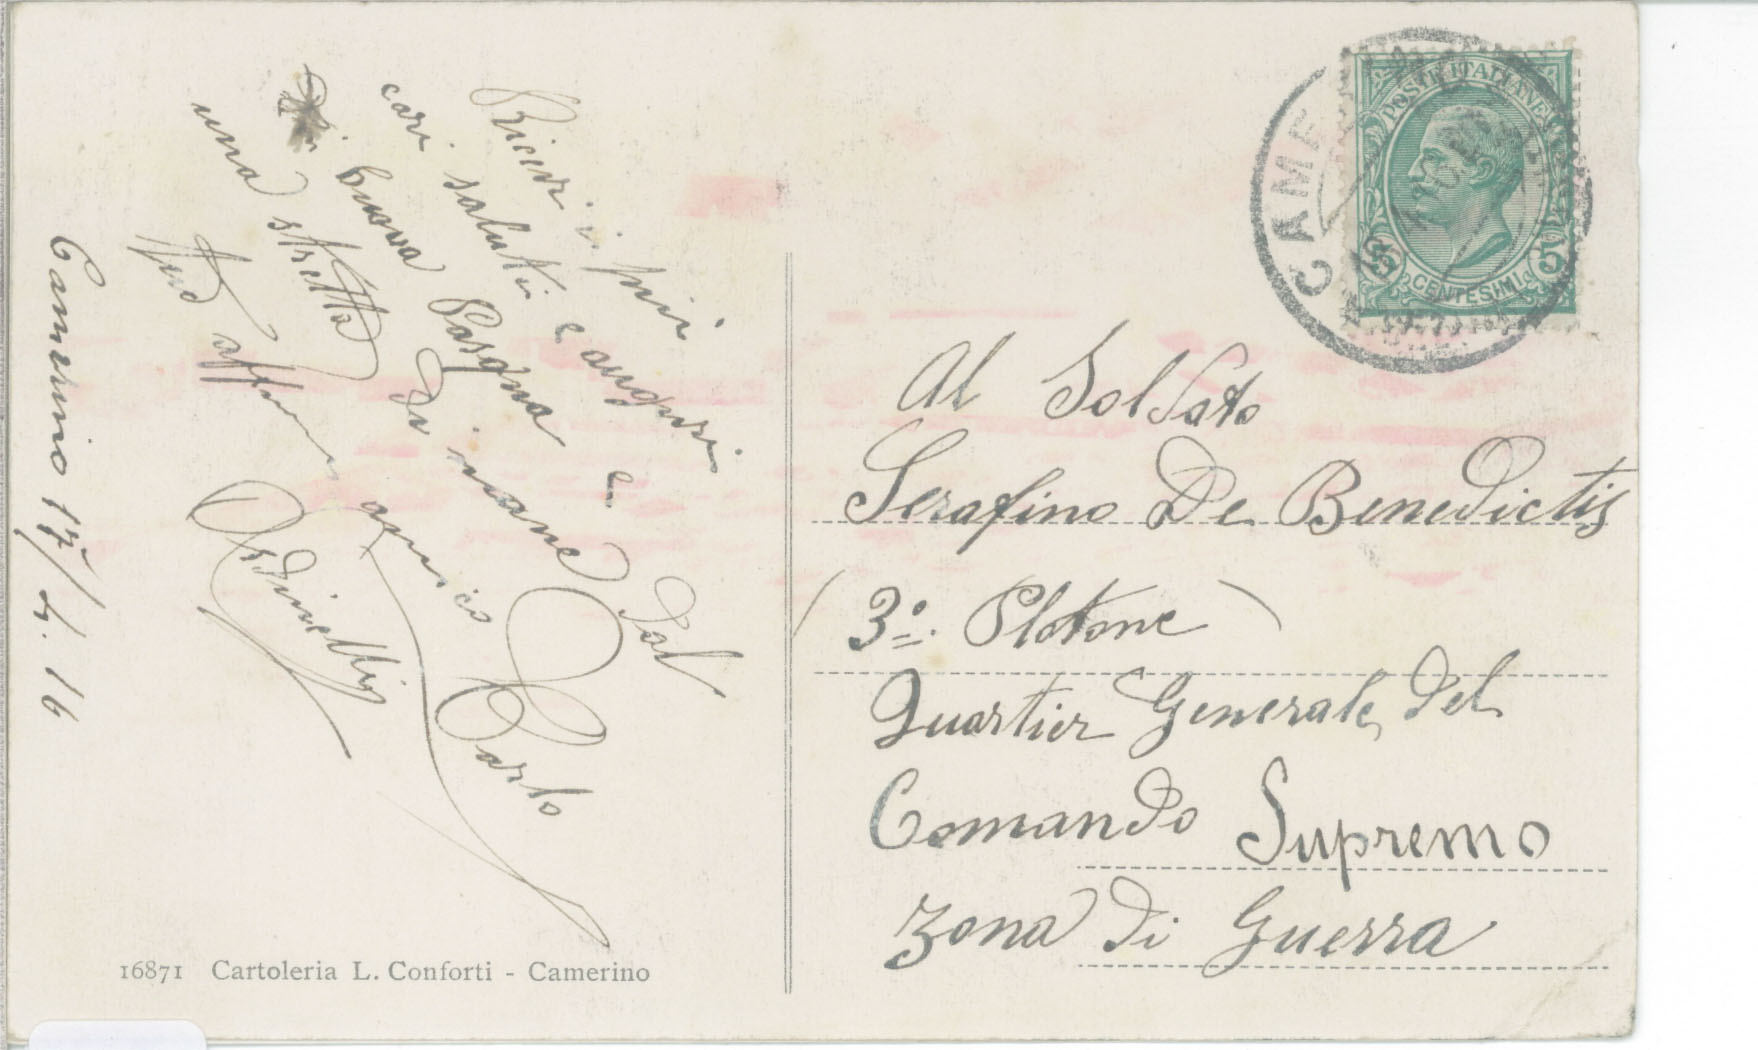 Ricevi i miei
cari saluti e auguri
di buona Pasqua e
una stretta di mano dal
tuo aff. amico Carlo
Camerino 17/4.16
16871 Cartoleria L. Conforti - Camerino
POSTE ITALIANE
5 CENTESIMI 5
CAME
Al Soldato
Serafino De Benedictis
(3º Plotone)
Quartier Generale del
Comando Supremo
Zona di Guerra